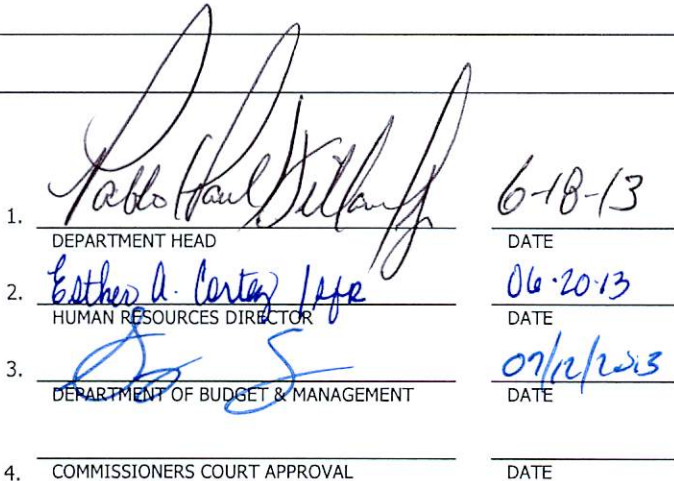 1. Pablo Paul Villarreal Jr 6-18-13
DEPARTMENT HEAD DATE
2. Esther A. Cortez / 06·20·13
HUMAN RESOURCES DIRECTOR DATE
3. 07/12/2013
DEPARTMENT OF BUDGET & MANAGEMENT DATE
4. COMMISSIONERS COURT APPROVAL DATE